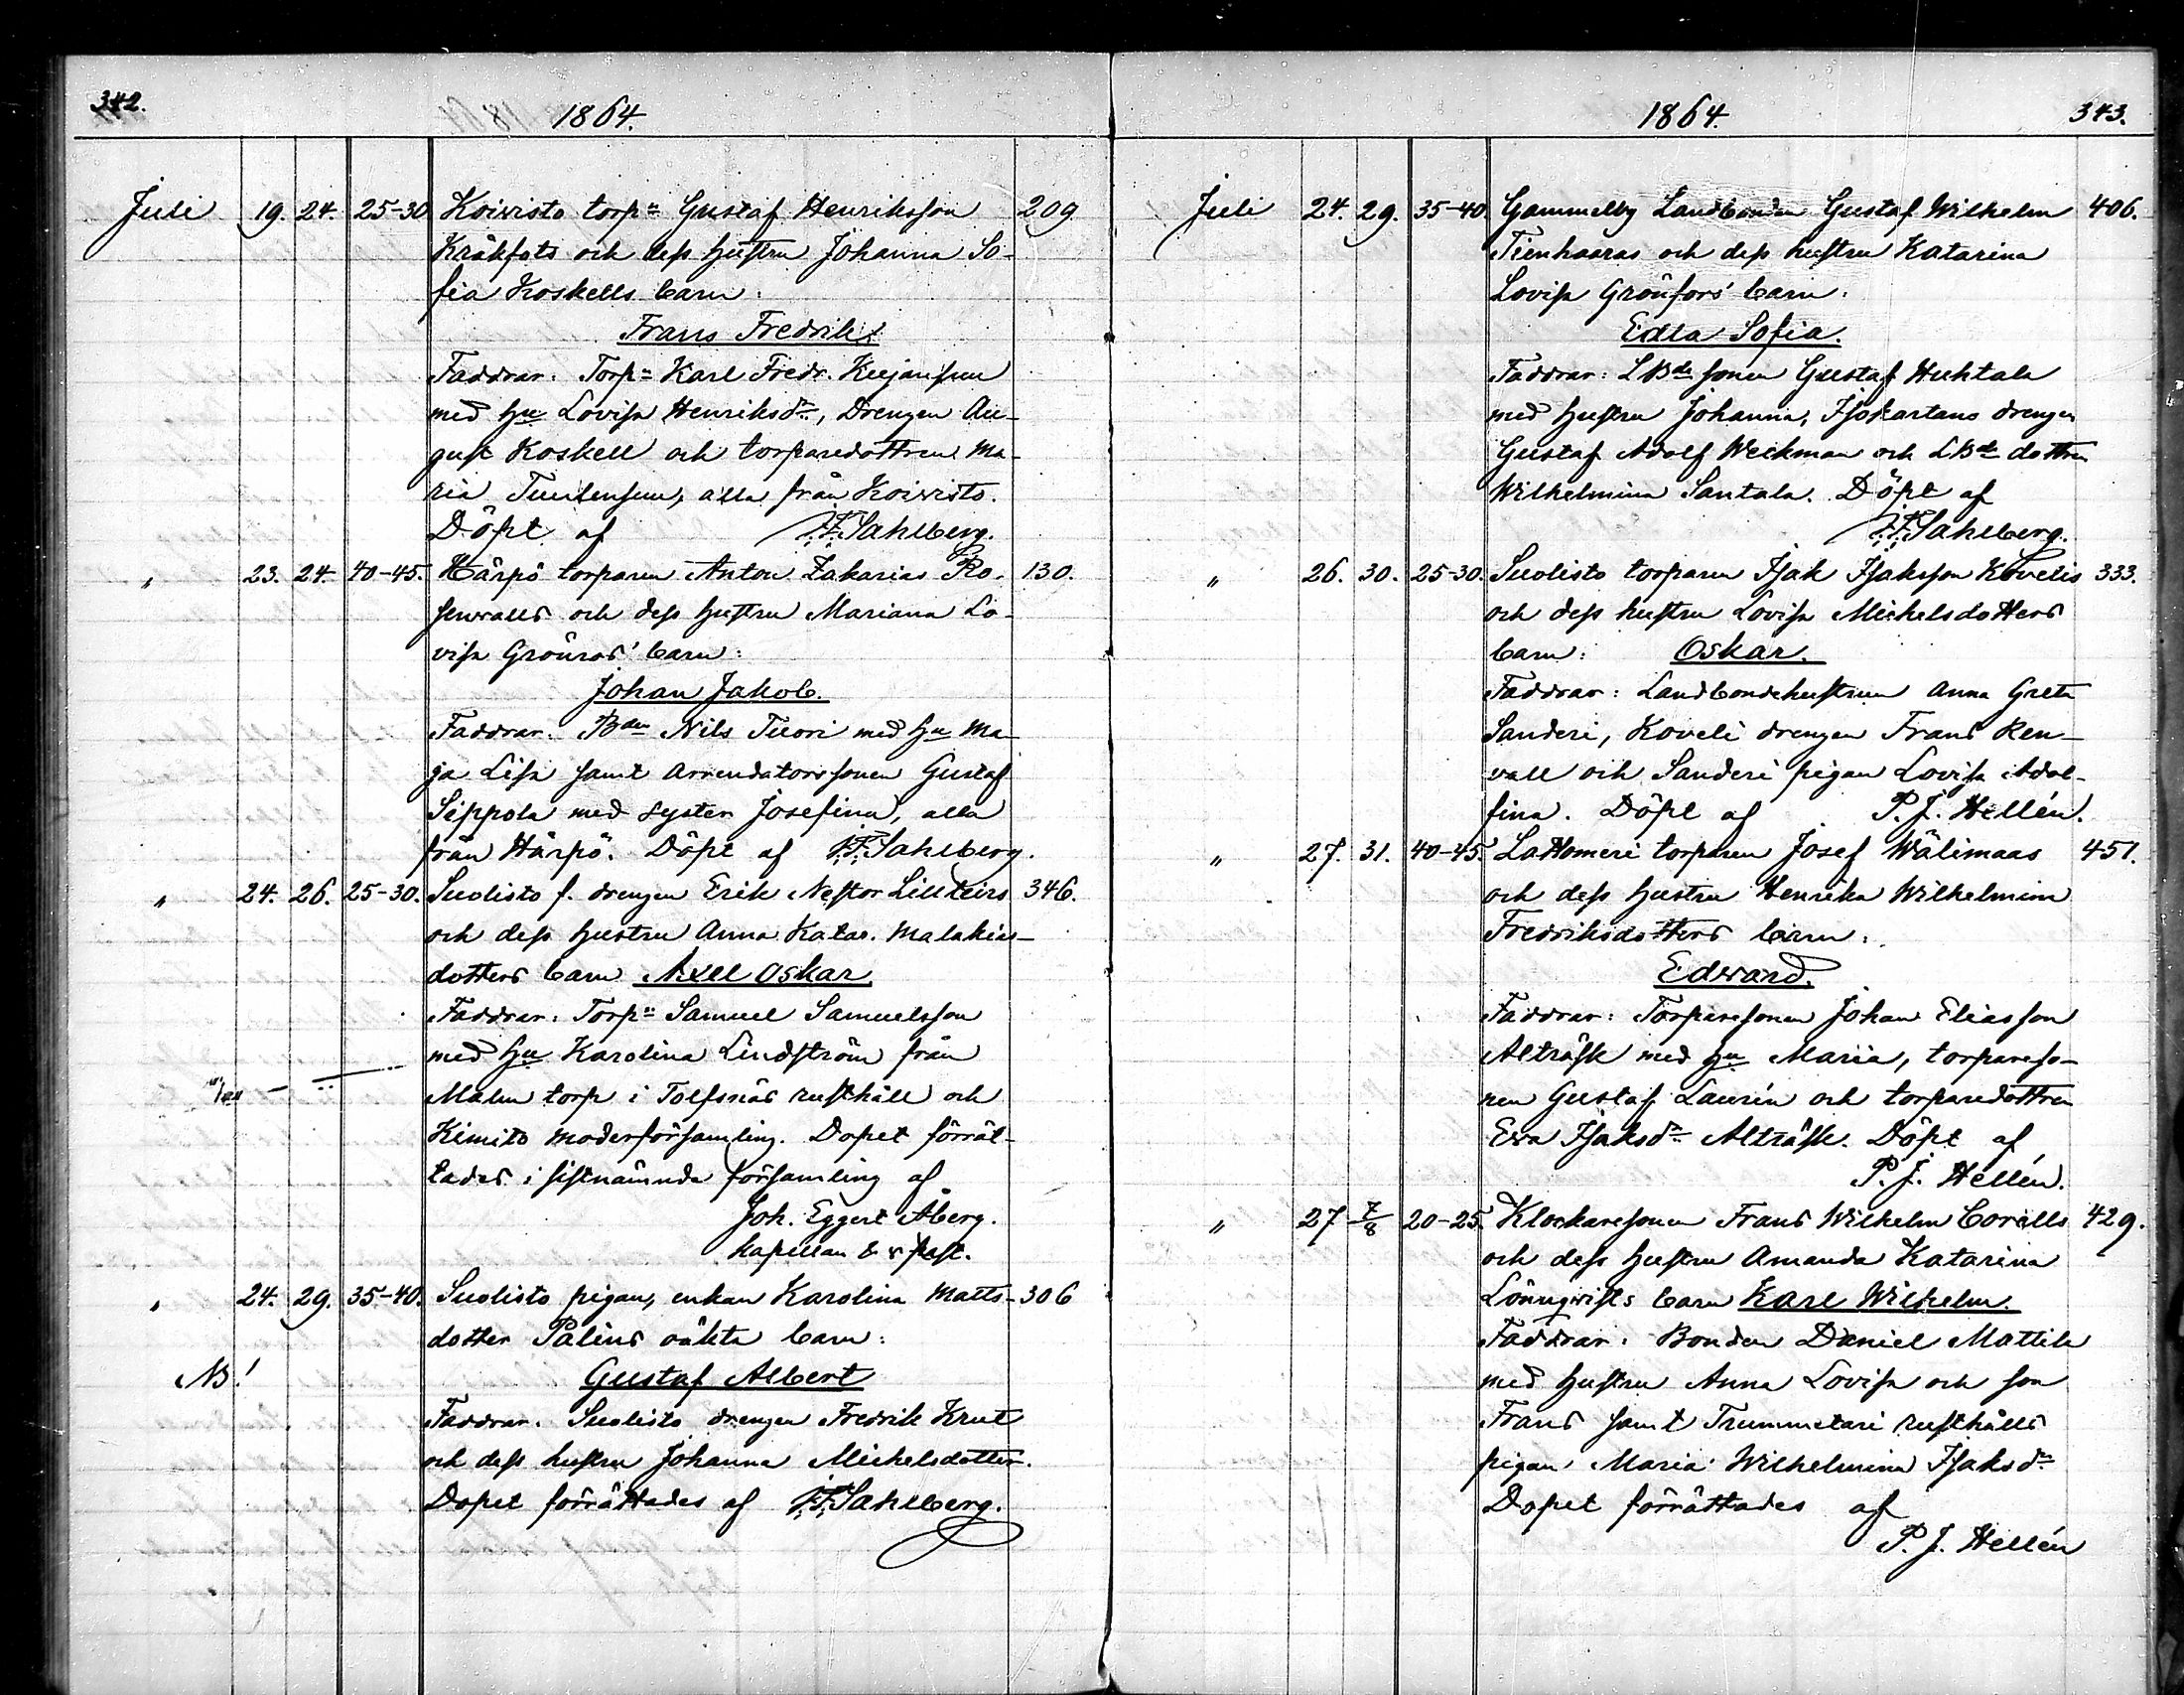 342.
1864.
Juli 19. 24. 25-30 Koivisto torp:n Gustaf Henriksson 209
Kråkfots och dess hustru Johanna So-
fia Koskells barn:
Frans Fredrik
Faddrar: Torp:n Karl Fredr. Kujansuu
med hu Lovisa Henriksdr, Drengen Au-
gust Koskell och torparedottren Ma-
ria Tuulensuu, alla från Koivisto.
Döpt af F. F. Sahlberg.
" 23. 24. 40-45. Härpö torparen Anton Zakarias Ro- 130.
senvalls och dess hustru Mariana Lo-
visa Grönros' barn:
Johan Jakob.
Faddrar: Bden Nils Tuori med hu Ma-
ja Lisa samt Arrendatorssonen Gustaf
Sippola med syster Josefina, alla
från Härpö. Döpt af F. F. Sahlberg.
" 24. 26. 25-30. Suolisto f. drengen Erik Nestor 346.
och dess hustru Anna Katar. Malakias-
dotters barn Axel Oskar.
Faddrar: Torp:n Samuel Samuelsson
med hu Karolina Lindström från
Malm torp i Tolfsnäs rusthåll och
Kimito moderförsamling. Dopet förrät-
tades i sistnämnda församling af
Joh. Eggert Åberg.
kapellan & v past.
" 24. 29. 35-40. Suolisto pigan, enkan Karolina Matts- 306
dotter Palins oäkta barn:
NB! Gustaf Albert
Faddrar: Suolisto drengen Fredrik Krut
och dess hustru Johanna Michelsdotter.
Dopet förrättades af F. F. Sahlberg.
1864. 343.
Juli 24. 29. 35-40. Gammelby Landbonden Gustaf Wilhelm 406.
Tienhaaras och dess hustru Katarina
Lovisa Grönfors' barn:
Edla Sofia.
Faddrar: LBde sonen Gustaf Huhtala
med hustru Johanna, Isokartano drengen
Gustaf Adolf Weckman och LBde dottren
Wilhelmina Santala. Döpt af
F. F. Sahlberg.
" 26. 30. 25-30. Suolisto torparen Isak Isaksson Kovelis 333.
och dess hustru Lovisa Michelsdotters
barn: Oskar.
Faddrar: Landbondehustrun Anna Greta
Sanderi, Koveli drengen Frans Ren-
vall och Sanderi pigan Lovisa Adol-
fina. Döpt af P. J. Hellén.
" 27. 31. 40-45. Lattomeri torparen Josef Wälimaas 451.
och dess hustru Henrika Wilhelmina
Fredriksdotters barn:
Edward.
Faddrar: Torparesonen Johan Eliasson
Alträsk med hu Maria, torpareso-
nen Gustaf Laurén och torparedottren
Eva Isaksdr Alträsk. Döpt af
P. J. Hellén.
" 27 7/8 20-25. Klockaresonen Frans Wilhelm Corells 429.
och dess hustru Amanda Katarina
Lönnqvists barn Karl Wilhelm.
Faddrar: Bonden Daniel Mattila
med hustru Anna Lovisa och son
Frans samt Trummetari rusthålls
pigan Maria Wilhelmina Isaksdr
Dopet förrättades af
P. J. Hellén